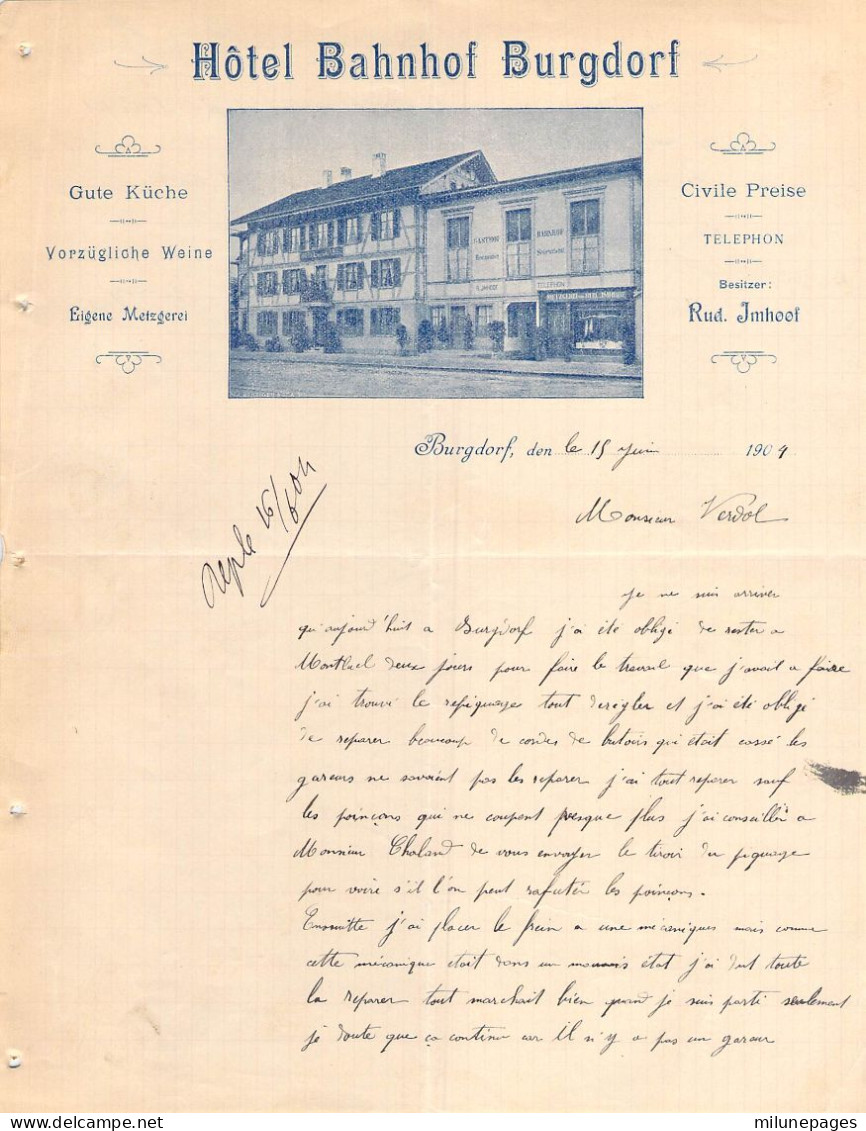 Hôtel Bahnhof Burgdorf
Gute Küche
Vorzügliche Weine
Eigene Metzgerei
Civile Preise
TELEPHON
Besitzer:
Rud. Imhoof
GASTHOF BAHNHOF
R. IMHOOF TELEPHON
Burgdorf, den le 15 juin 1904
16/6 04
Monsieur Verdol
je ne suis arriver
qu'aujourd'huit a Burgdorf j'ai été obligé de rester a
Montluel deux jours pour faire le travail que j'avait a faire
j'ai trouvé le repiquage tout derégler et j'ai été obligé
de reparer beaucoup de cordes de butoirs qui était cassé les
gareurs ne savaient pas les reparer j'ai tout reparer sauf
les poinçons qui ne coupent presque plus j'ai conseiller a
Monsieur Chaland de vous envoyer le tiroir du piquage
pour voire s'il l'on peut rafutér les poinçons.
Ensuitte j'ai placer le frein a une mécaniques mais comme
cette mécanique etait dans un mauvais état j'ai dut toute
la reparer tout marchait bien quand je suis parti seulement
je doute que ça continu car il n'y a pas un gareur
milunepages